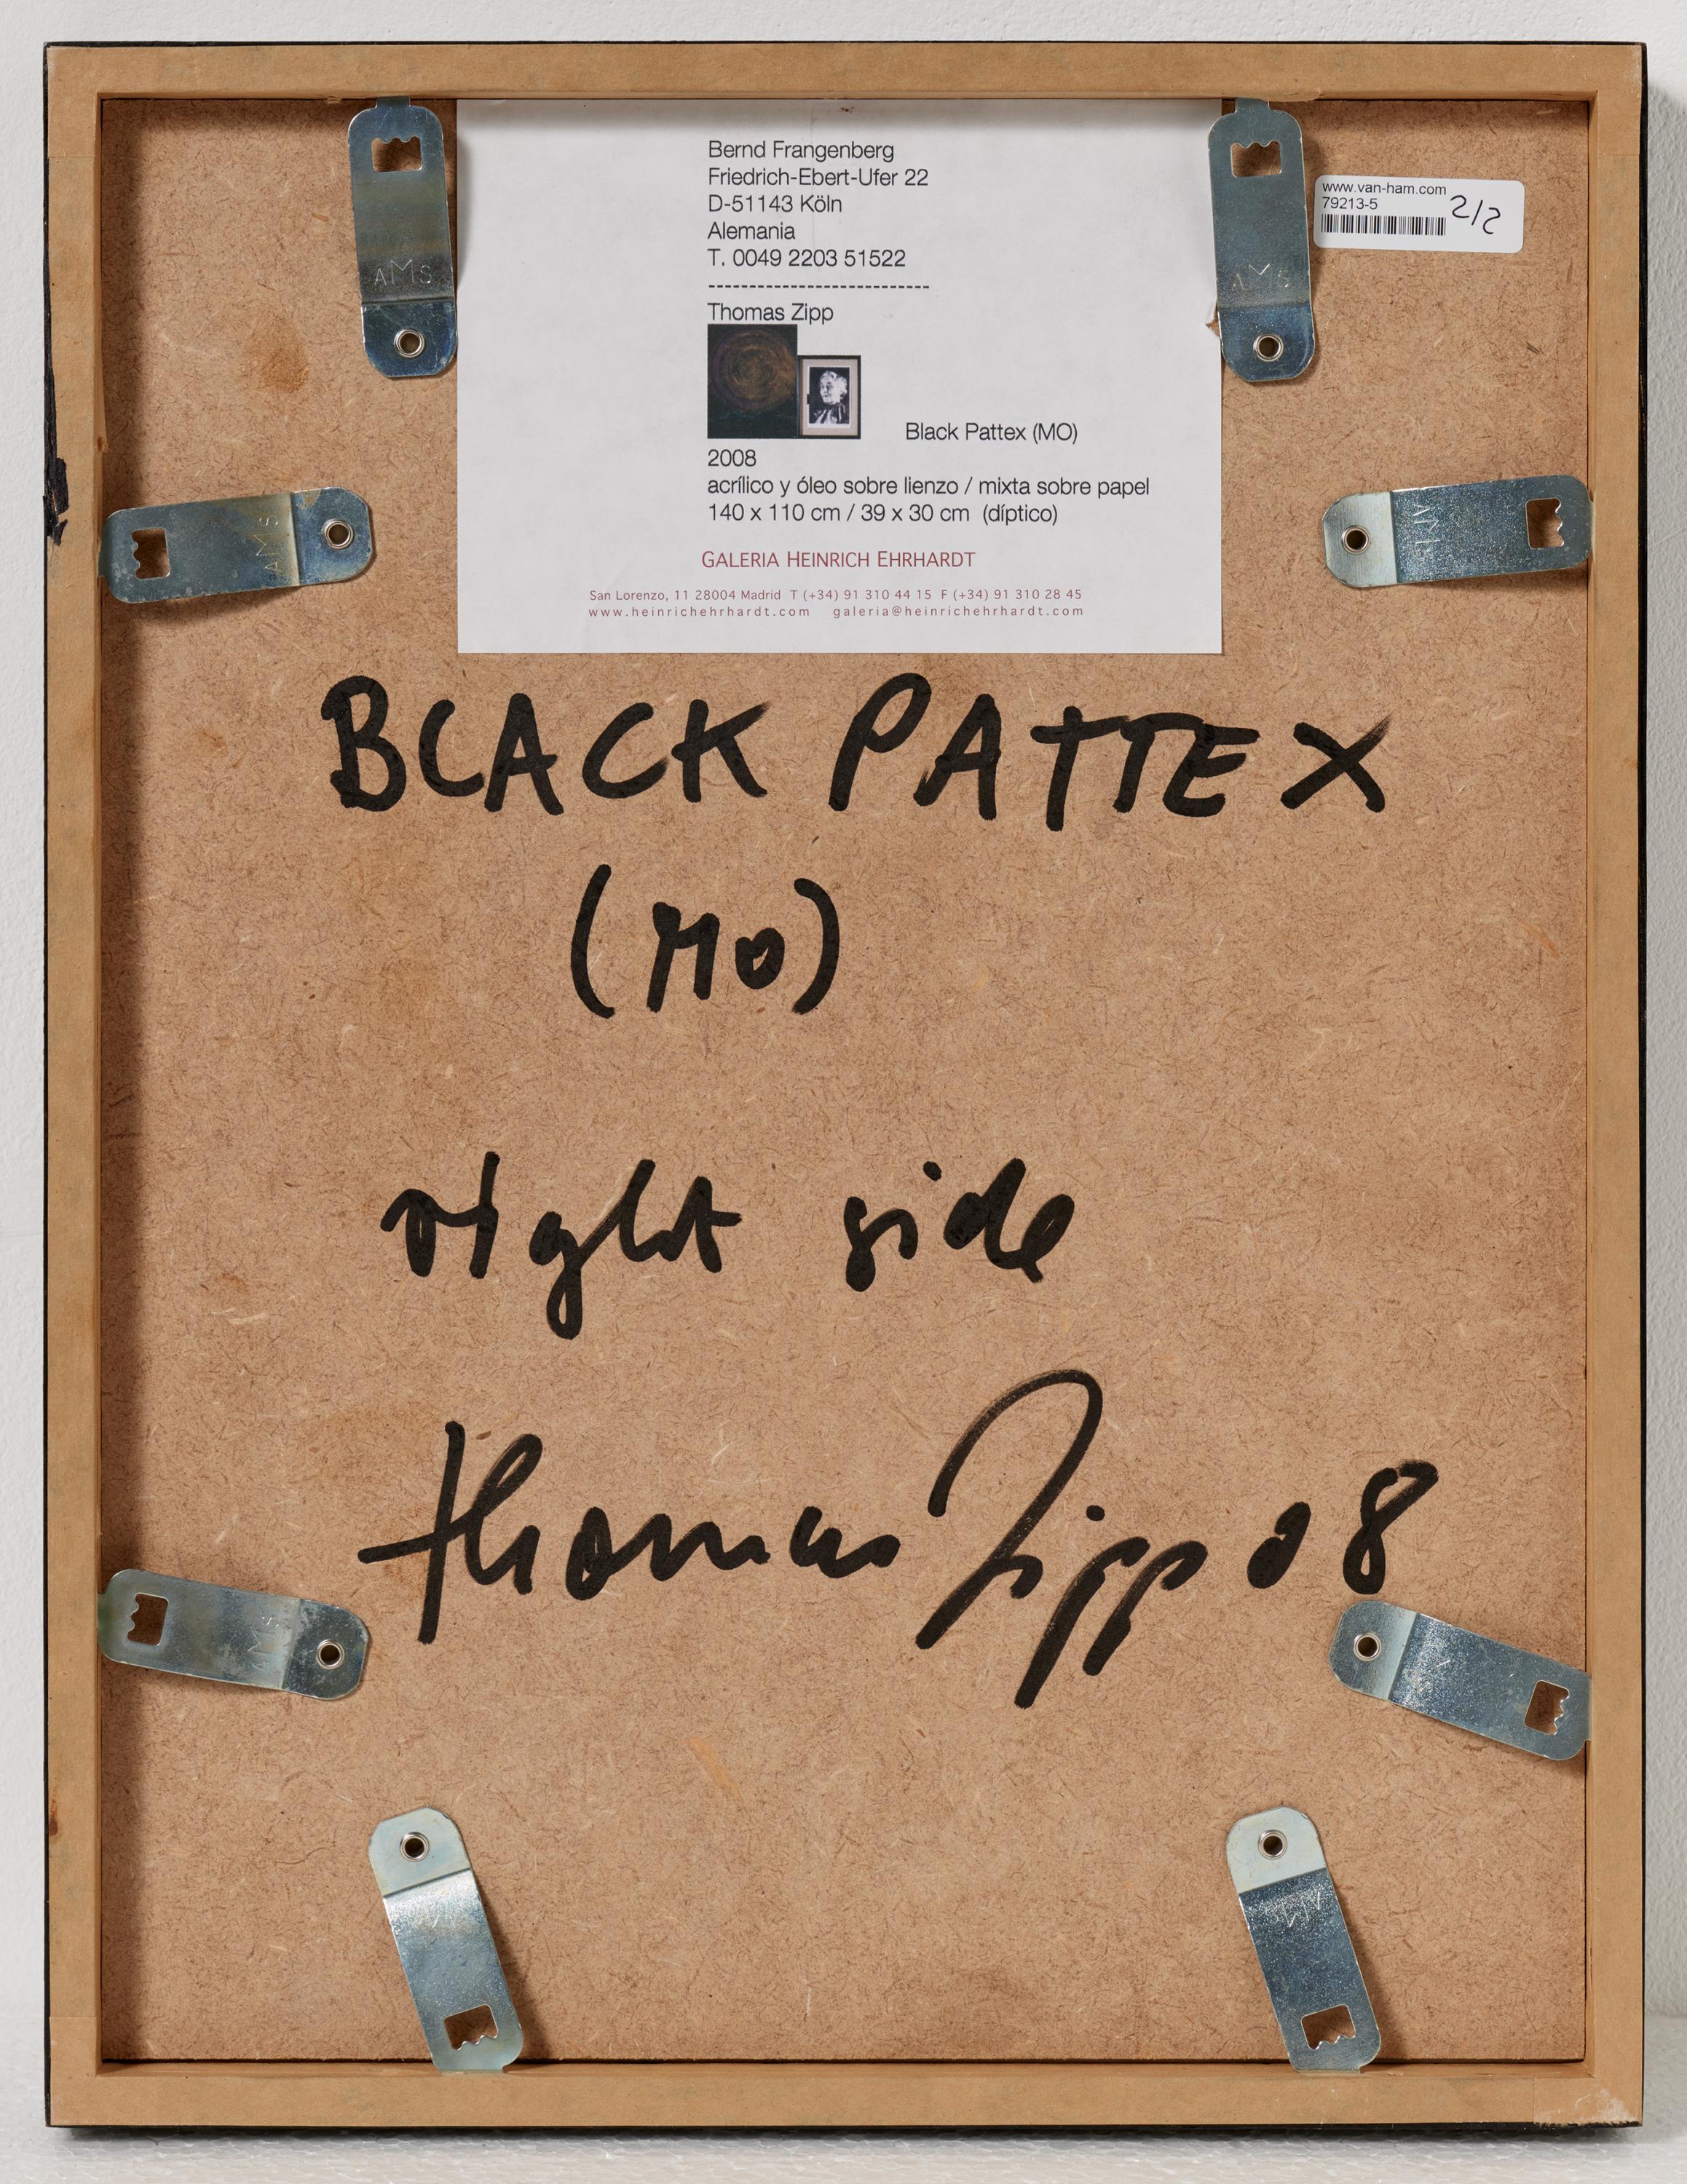 Bernd Frangenberg
Friedrich-Ebert-Ufer 22
D-51143 Köln
Alemania
T. 0049 2203 51522
---------------------------
Thomas Zipp
Black Pattex (MO)
2008
acrílico y óleo sobre lienzo / mixta sobre papel
140 x 110 cm / 39 x 30 cm (díptico)
GALERIA HEINRICH EHRHARDT
San Lorenzo, 11 28004 Madrid T (+34) 91 310 44 15 F (+34) 91 310 28 45
www.heinrichehrhardt.com galeria@heinrichehrhardt.com
www.van-ham.com
79213-5
2/2
AMS
AMS
AMS
AMS
BLACK PATTEX
(MO)
right side
Thomas Zipp 08
AMS
AMS
AMS